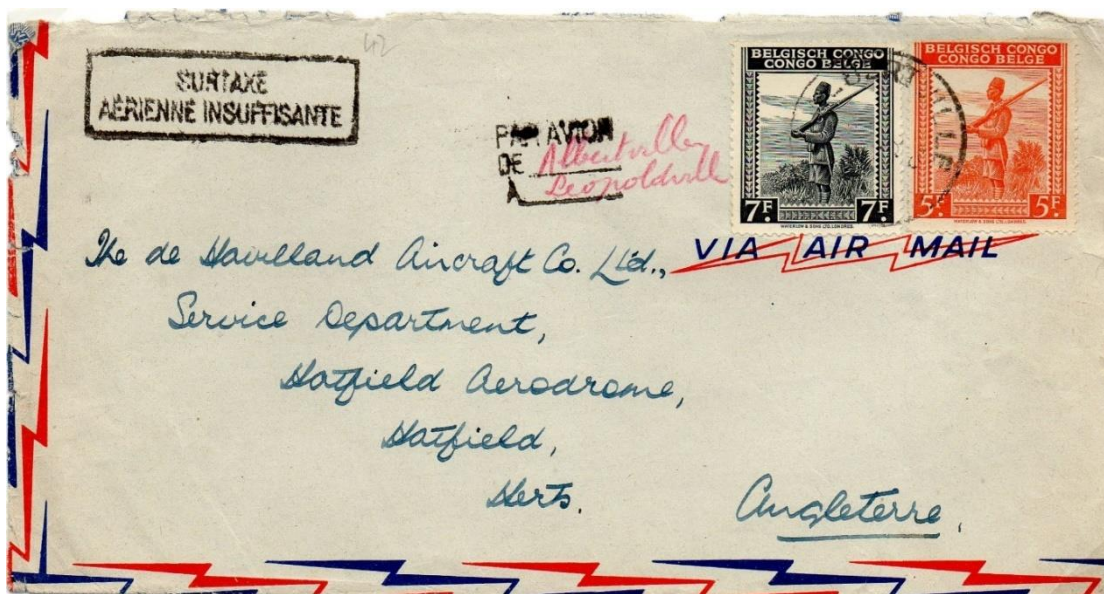 42
SURTAXE
AÉRIENNE INSUFFISANTE
PAR AVION
DE Albertville
A Leopoldville
BELGISCH CONGO
CONGO BELGE
7F. 7F.
WATERLOW & SONS LTD. LONDRES.
BELGISCH CONGO
CONGO BELGE
5F. 5F.
WATERLOW & SONS LTD. LONDRES.
VIA AIR MAIL
The de Havilland Aircraft Co. Ltd.,
Service Department,
Hatfield Aerodrome,
Hatfield,
Herts.
Angleterre.